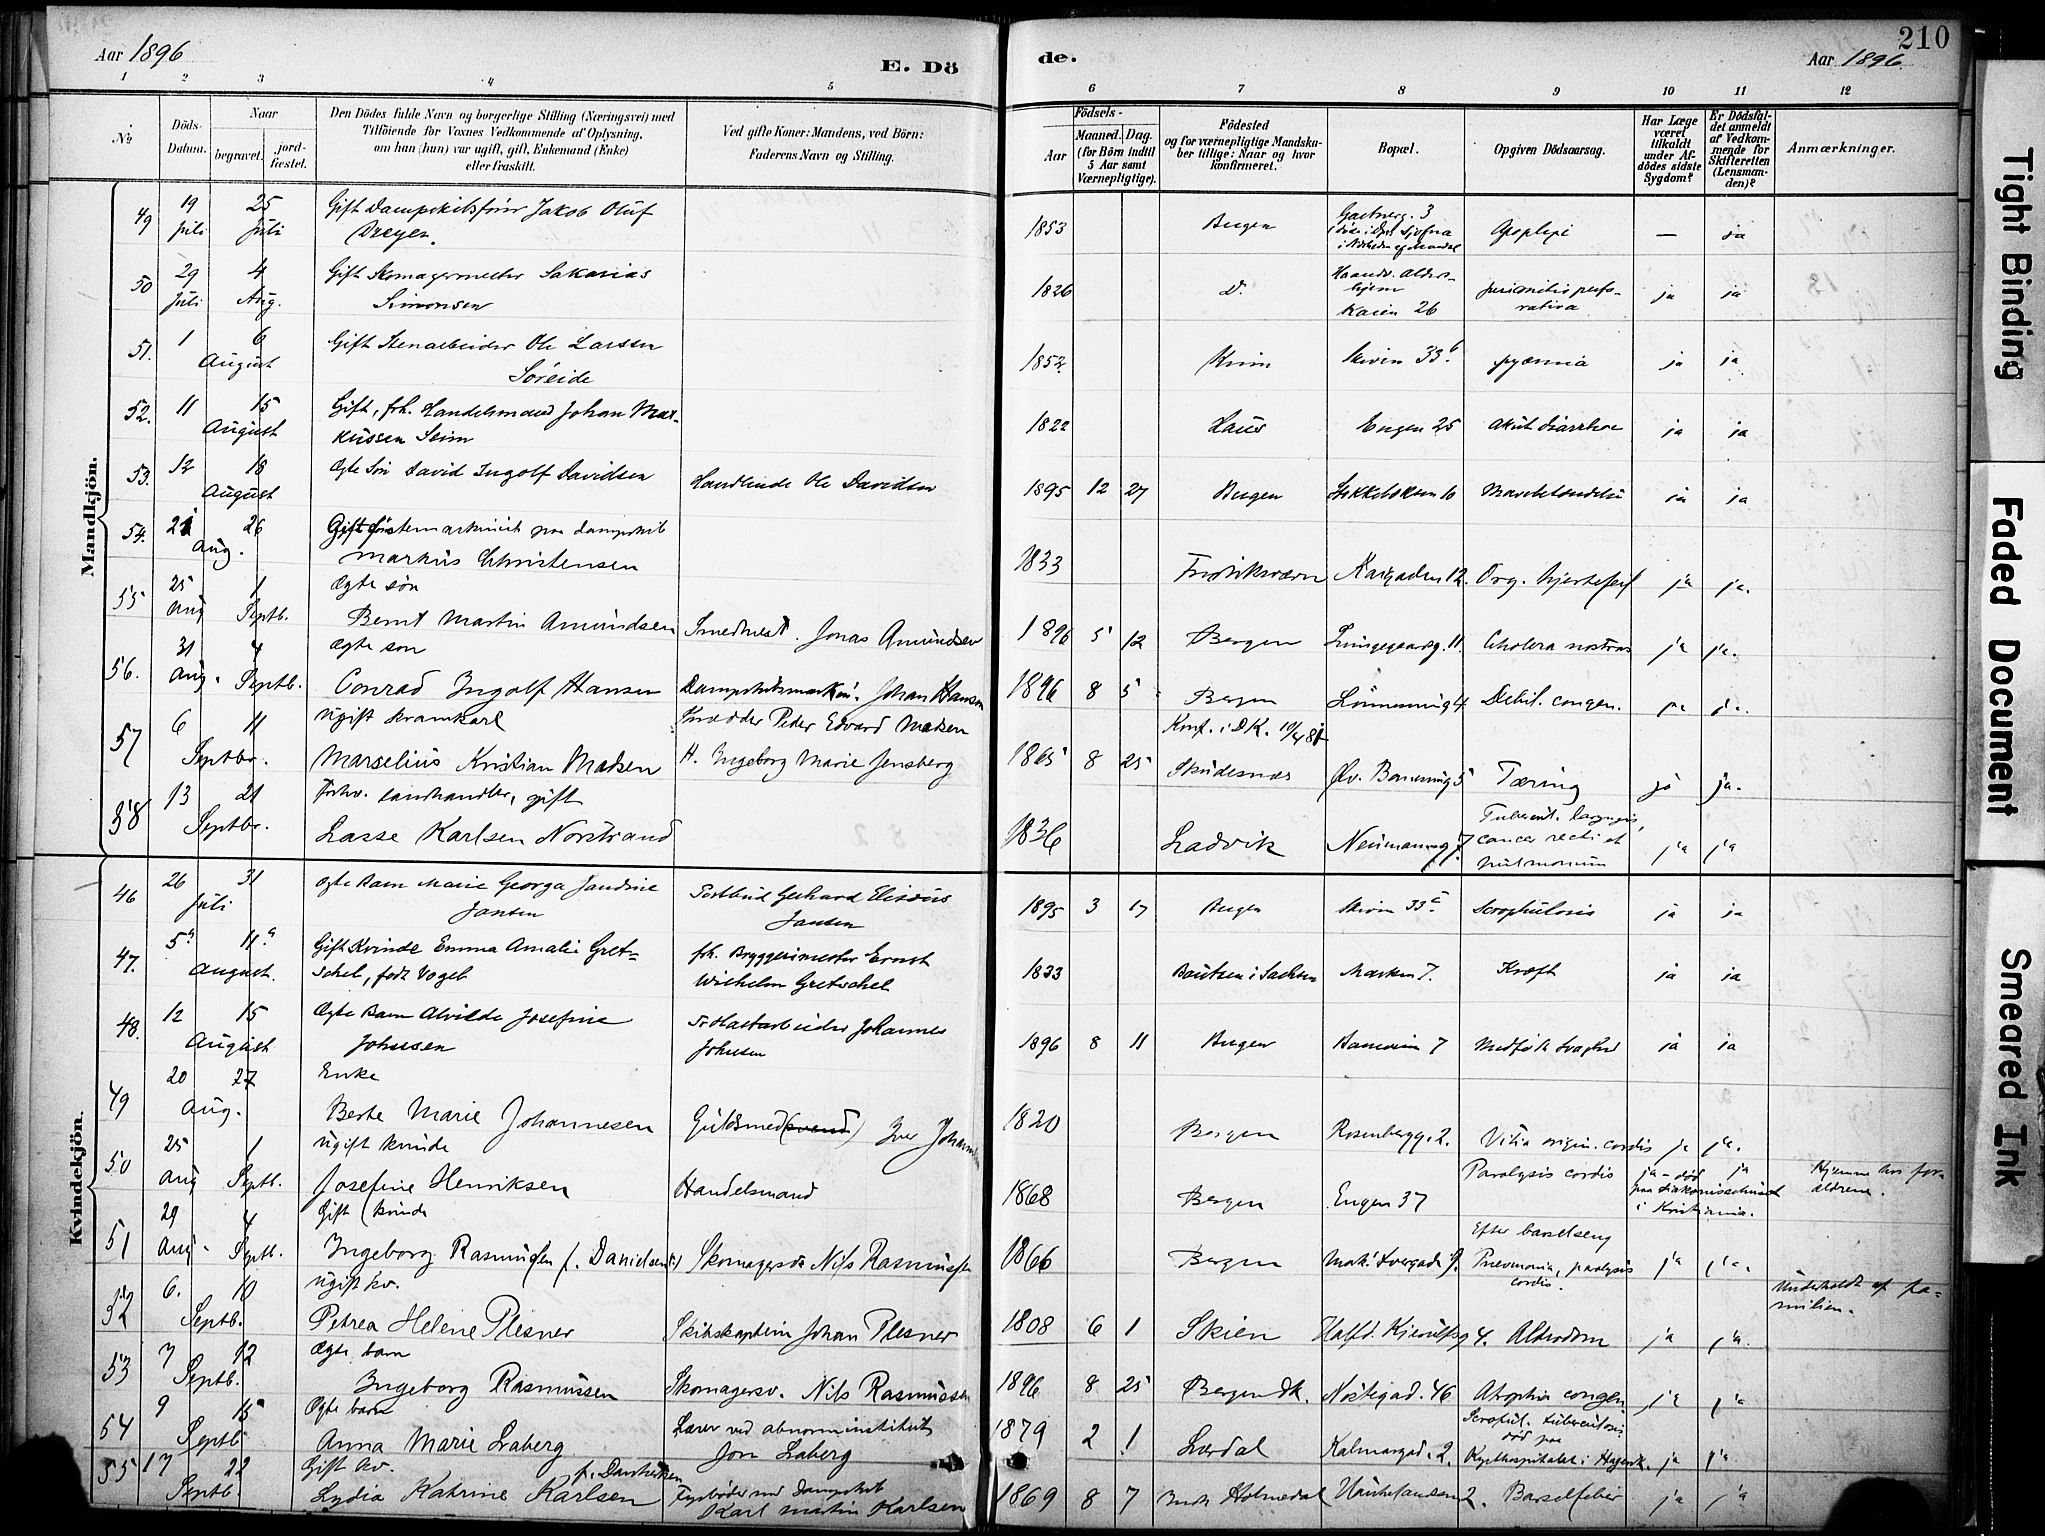 Aar 1896
E. Dö
de.
Aar 1896
210
1 2 3 4 5 6 7 8 9 10 11 12
№
Döds-Datum.
Naar
begravet.
jord-fæstet.
Den Dödes fulde Navn og borgerlige Stilling (Næringsvei) med
Tilföiende for Voxnes Vedkommende af Oplysning,
om han (hun) var ugift, gift, Enkemand (Enke)
eller fraskilt.
Ved gifte Koner: Mandens, ved Börn:
Faderens Navn og Stilling.
Födsels-
Aar
Maaned. Dag.
(for Börn indtil
5 Aar samt
Værnepligtige).
Födested
og for værnepligtige Mandska-
ber tillige: Naar og hvor
konfirmeret.
Bopæl.
Opgiven Dödsaarsag.
Har Læge
været
tilkaldt
under Af-
dödes sidste
Sygdom?
Er Dödsfal-
det anmeldt
af Vedkom-
mende for
Skifteretten
(Lensman-
den)?
Anmærkninger.
Mandkjön.
49 19 Juli 25 Juli Gift Dampskibsfører Jakob Oluf
Dreyer. 1853 Bergen Apoplexi — ja
50 29 Juli 4 Aug. Gift Skomagermester Sakarias
Simonsen 1826 D. Haandv. Alders-
hjem
Kaien 26 perfo-
rativa ja ja
51. 1 6 August Gift Stenarbeider Ole Larsen
Søreide 1852 Kinn Skiven 33 b pyæmia ja ja
52. 11 15 August Gift, frh. Handelsmand Johan Mar-
kussen Seim 1822 Haus Engen 25 Akut diarrhoe ja ja
53. 12 18 August Ægte Søn David Ingolf Davidsen Handlende Ole Davidsen 1895 12 27 Bergen ja ja
54. 21 Aug. 26 Gift første maskinist paa dampskib
Markus Christensen 1833 Fredriksværn 12. Org. hjertefeil ja ja.
55 25 Aug 1 Septb. Ægte søn
Bernt Martin Amundsen Smedmest. Jonas Amundsen 1896 5 12 Bergen Lungegaardsg. 11. Cholera nostras ja ja.
56. 31 Aug. 4 Septb. Ægte søn
Conrad Ingolf Hansen Dampskibsmaskin. Johan Hansen 1896 8 5 Bergen 4 Debil. congen. ja ja.
57 6 11 Septbr. Ugift kramkarl
Marselius Kristian Madsen Skrædder Peder Edvard Madsen
H. Ingeborg Marie Jensberg 1865 8 25 Konf. i D.K. 10/4 81
Skudesnæs 5 Tæring ja ja.
58 13 21 Septbr. Forhv. landhandler, gift
Lasse Karlsen Norstrand 1836 Ladvik Neumannsg 7 Tubercul. laryngis,
cancer recti et
pulmonum ja ja
Kvindekjön.
46 26 31 Juli Ægte Barn Marie Georga Jandine
Jansen Postbud Gerhard Elisæus
Jansen 1895 3 17 Bergen Skiven 33 c Scrophulosis ja ja
47. 5 11 August. Gift Kvinde Emma Amalie Gret-
schel, født Vogel frh. Bryggerimester Ernst
Wilhelm Gretschel 1833 Bautzen i Sachsen Marken 7. Kræft ja ja
48. 12 15 August Ægte Barn Alvilde Josefine
Johnsen Johannes
Johnsen 1896 8 11 Bergen 7 Medfødt Svaghed ja ja
49 20 27 Aug. Enke
Berte Marie Johannesen Guldsmed(svend) Iver Johannesen 1820 Bergen Rosenbergg. 2. Vitia origin. cordis ja ja.
50 25 Aug 1 Septb. Ugift kvinde
Josefine Henriksen Handelsmand 1868 Bergen Engen 37 Paralysis cordis ja - død
paa diakonissehuset
i Kristiania. ja Hjemme hos for-
ældrene.
51 29 Aug. 4 Septb. Gift kvinde
Ingeborg Rasmussen (f. Danielsen) Skomagersv. Nils Rasmussen 1866 Bergen 9. Efter barselseng
Pneumonia, paralysis
cordis. ja ja.
52 6. 10 Septb. Ugift kv.
Petrea Helene Plesner Skibskaptein Johan Plesner 1808 6 1 Skien Halfd. Kjerulfsg 4. Alderdom ja ja. Underholdt af fa-
milien.
53 7 12 Septb. Ægte barn
Ingeborg Rasmussen Skomagersv. Nils Rasmussen 1896 8 25 Bergen dk. Nøstegad. 46 Atrophia congen. ja ja
54 9 15 Septb Ægte barn
Anna Marie Laberg Lærer ved abnorminstitut
Jon Laberg 1879 2 1 Lærdal Kalmargad. 2. Scroful. tuberculosis
død paa
Kysthospitalet i Hagevk. ja ja
55 17 22 Septb. Gift kv.
Lydia Katrine Karlsen Fyrbøder ved dampskib
Karl Martin Karlsen 1869 8 7 Indr Holmedal 2. Barselfeber ja ja
Tight Binding
Faded Document
Smeared Ink